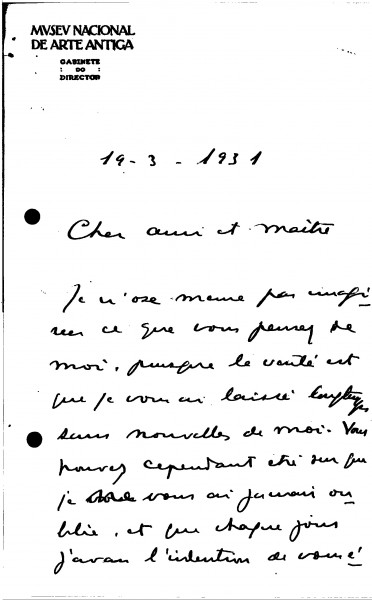 MVSEV NACIONAL
DE ARTE ANTIGA
GABINETE
: DO :
DIRECTOR
19-3-1931
Cher ami et maître
Je n'ose meme pas imagi
ner ce que vous pensez de
moi, puisque la vérité est
que je vous ai laissé longtemps
sans nouvelles de moi. Vous
pouvez cependant être sur que
je vous ai jamais ou
blié, et que chaque jours
j'avais l'intention de vous é